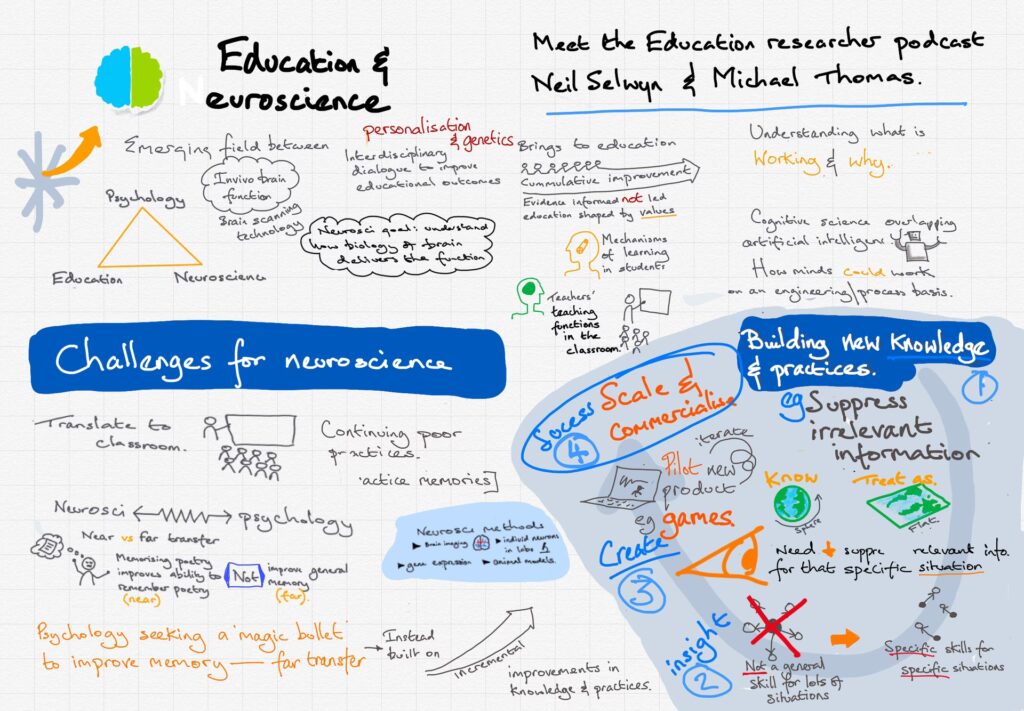 Education &
Neuroscience
Meet the Education researcher podcast
Neil Selwyn & Michael Thomas.
Emerging field between
Psychology
Education
Neuroscience
Invivo brain
function
Brain scanning
technology
personalisation
& genetics
Interdisciplinary
dialogue to improve
educational outcomes
Neurosci goal: understand
how biology of brain
delivers the function
Brings to education
Cummulative improvement
Evidence informed not led
education shaped by values
Mechanisms
of learning
in students
Teachers'
teaching
functions
in the
classroom.
Understanding what is
Working & why.
Cognitive science overlapping
artificial intelligen
How minds could work
on an engineering/process basis.
Challenges for neuroscience
Translate to
classroom.
Continuing poor
practices.
'actice memories]
Neurosci
psychology
Near vs far transfer
Memorising poetry
improves ability to
remember poetry
(near)
Not
improve general
memory
(far).
Neurosci methods
Brain imaging
individ neurons
in labs
gene expression
animal models.
Psychology seeking a 'magic bollet'
to improve memory — far transfer
Instead
built on
incremental
improvements in
knowledge & practices.
Building new knowledge
& practices.
1
eg Suppress
irrelevant
information
Know
Sphere
Treat as.
Flat
Need suppre relevant info.
for that specific situation
insight
2
Not a general
skill for lots of
situations
Specific skills for
specific situations
Create
3
iterate
Pilot new
product
eg games.
Sucess
4
Scale &
commercialise